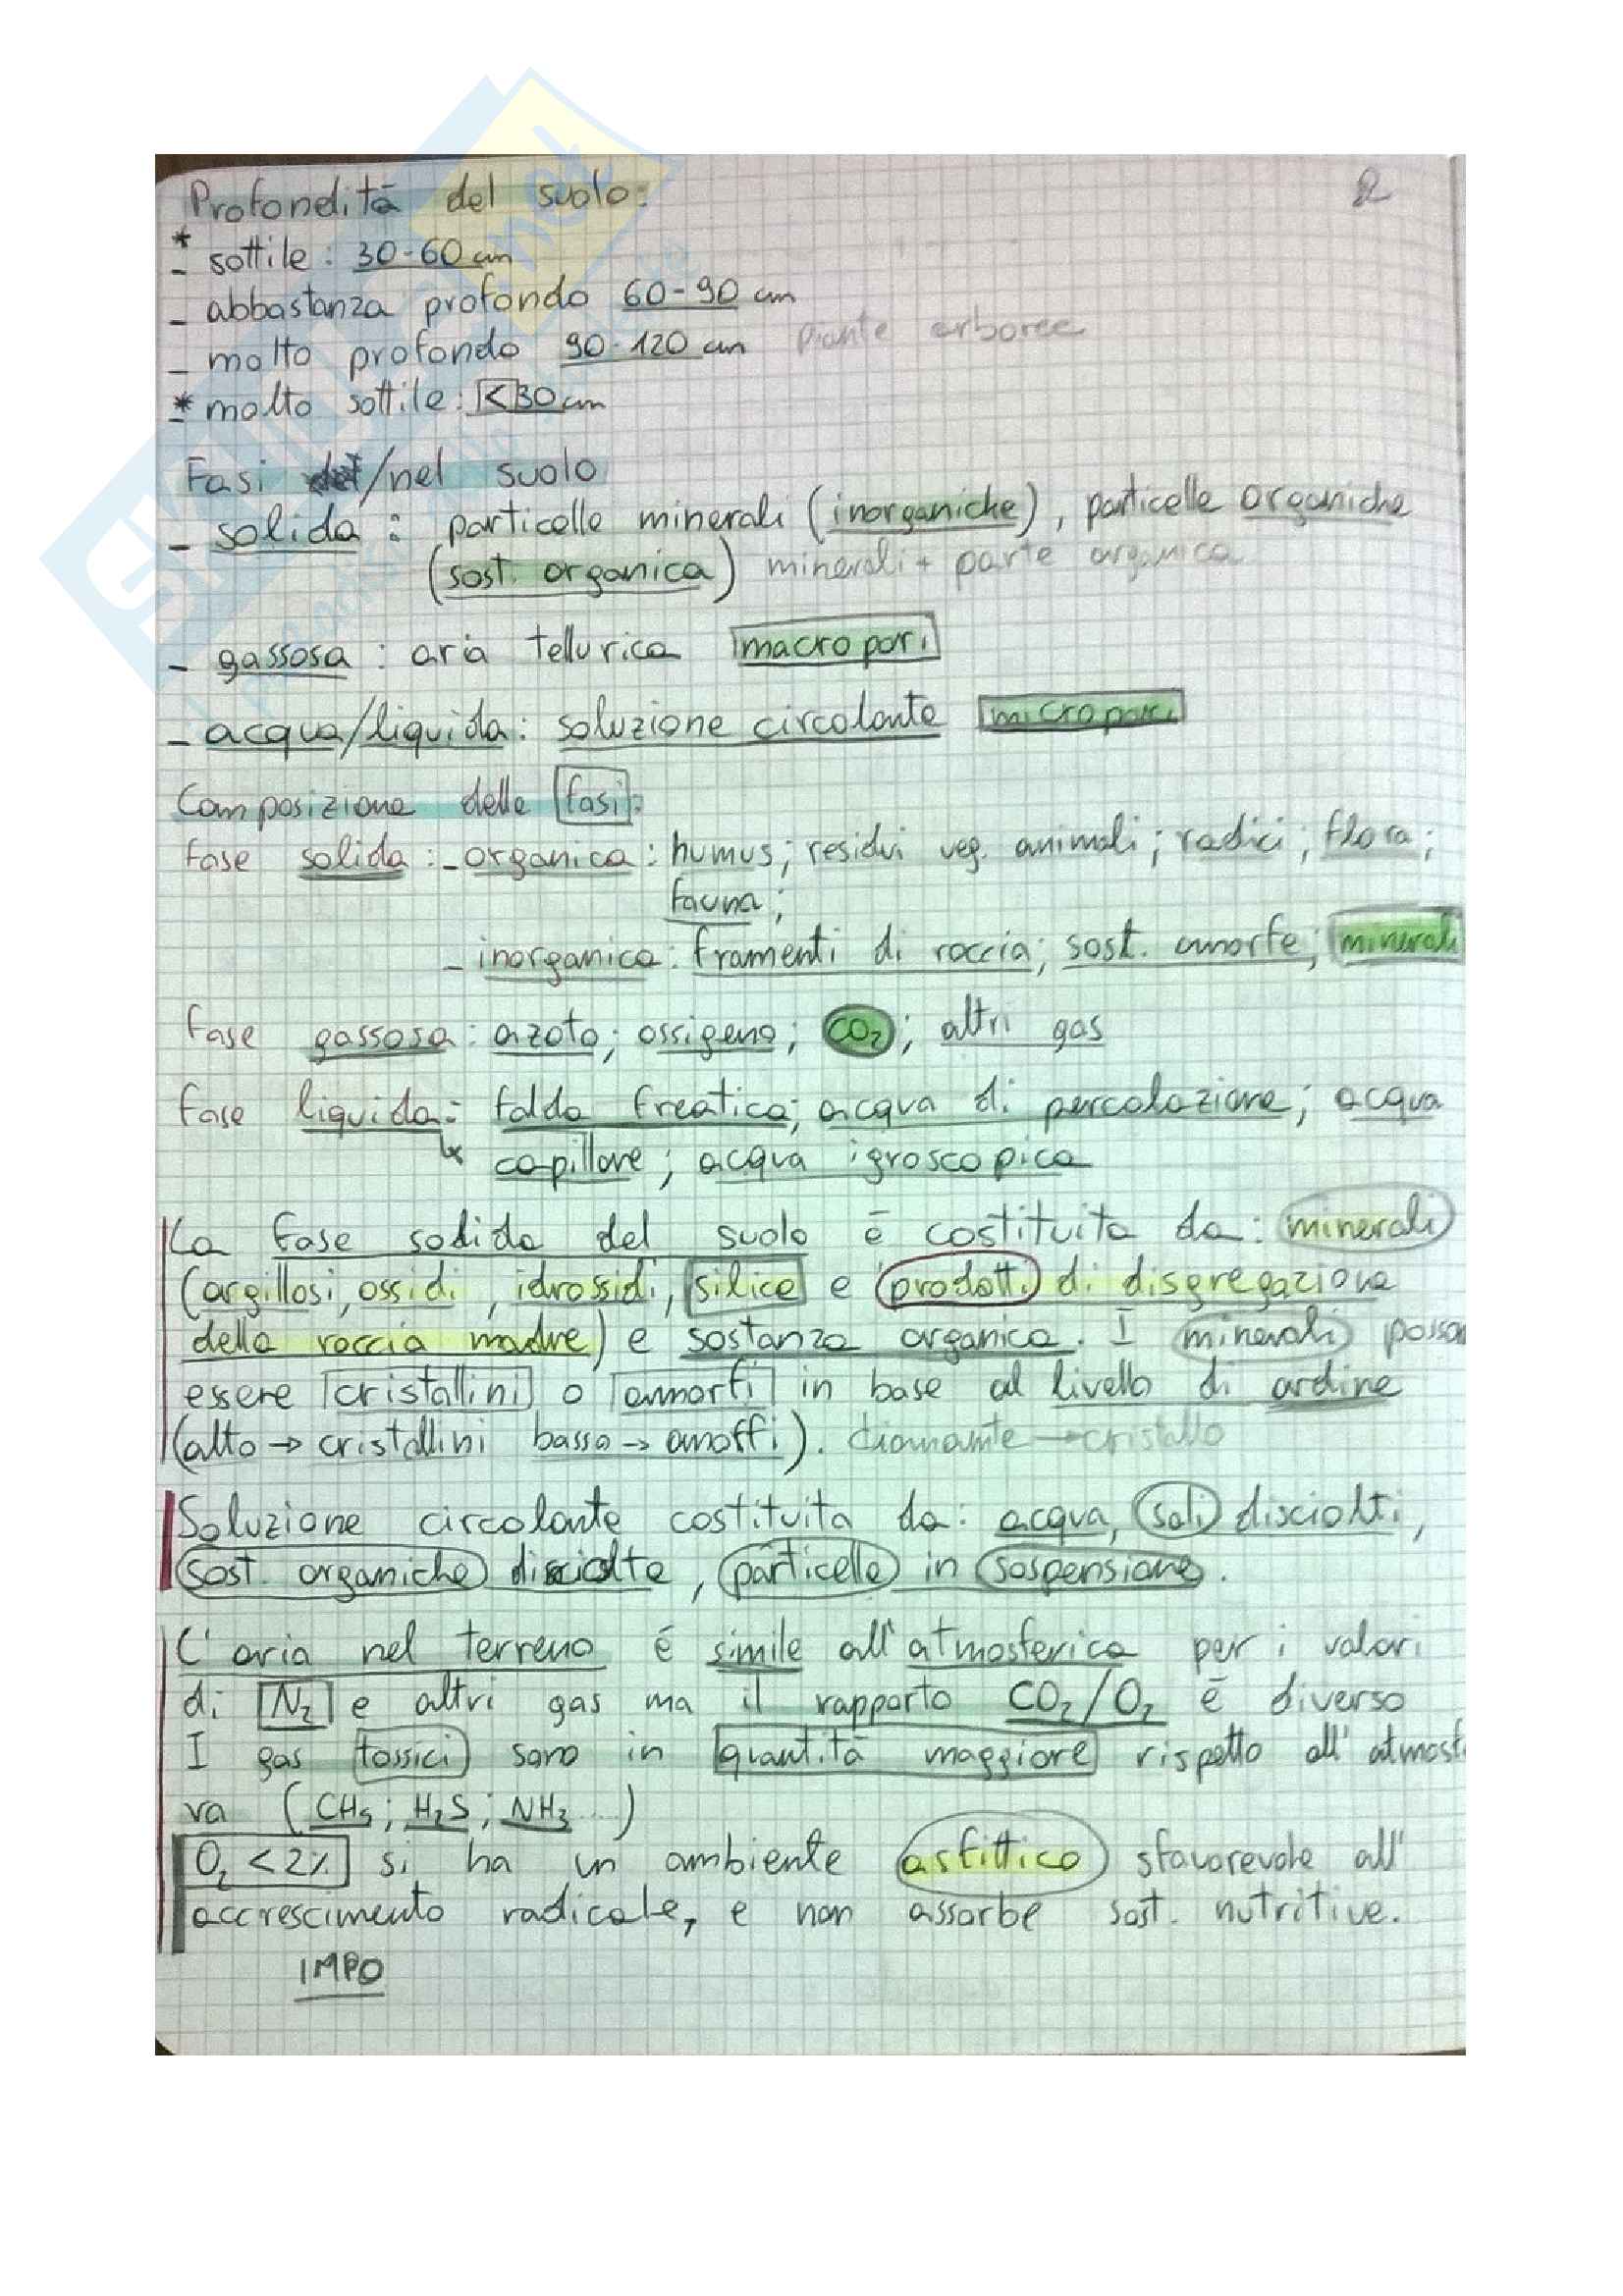 2
Profondità del suolo:
* - sottile: 30-60 cm
- abbastanza profondo 60-90 cm
- molto profondo 90-120 cm piante arboree
* - molto sottile: <30 cm
Fasi del/nel suolo
- solida : particelle minerali (inorganiche), particelle organiche
(sost. organica) minerali + parte organica
- gassosa : aria tellurica macropori
- acqua/liquida: soluzione circolante micropori
Composizione delle fasi:
Fase solida : - organica : humus; residui veg. animali; radici; flora;
fauna;
- inorganica: framenti di roccia; sost. amorfe; minerali
Fase gassosa : azoto; ossigeno; CO₂; altri gas
Fase liquida: falda freatica; acqua di percolazione; acqua
↳ capillare; acqua igroscopica
La fase solida del suolo è costituita da: minerali
(argillosi, ossidi, idrossidi, silice e prodotti di disgregazione
della roccia madre) e sostanza organica. I minerali posson
essere cristallini o amorfi in base al livello di ordine
(alto → cristallini basso → amorfi). diamante → cristallo
Soluzione circolante costituita da: acqua, sali disciolti,
sost. organiche disciolte, particelle in sospensione.
L'aria nel terreno è simile all'atmosferica per i valori
di N₂ e altri gas ma il rapporto CO₂/O₂ è diverso
I gas tossici sono in quantità maggiore rispetto all'atmosf
va (CH₄; H₂S; NH₃ ...)
O₂ < 2% si ha un ambiente asfittico sfavorevole all'
accrescimento radicale, e non assorbe sost. nutritive.
IMPO